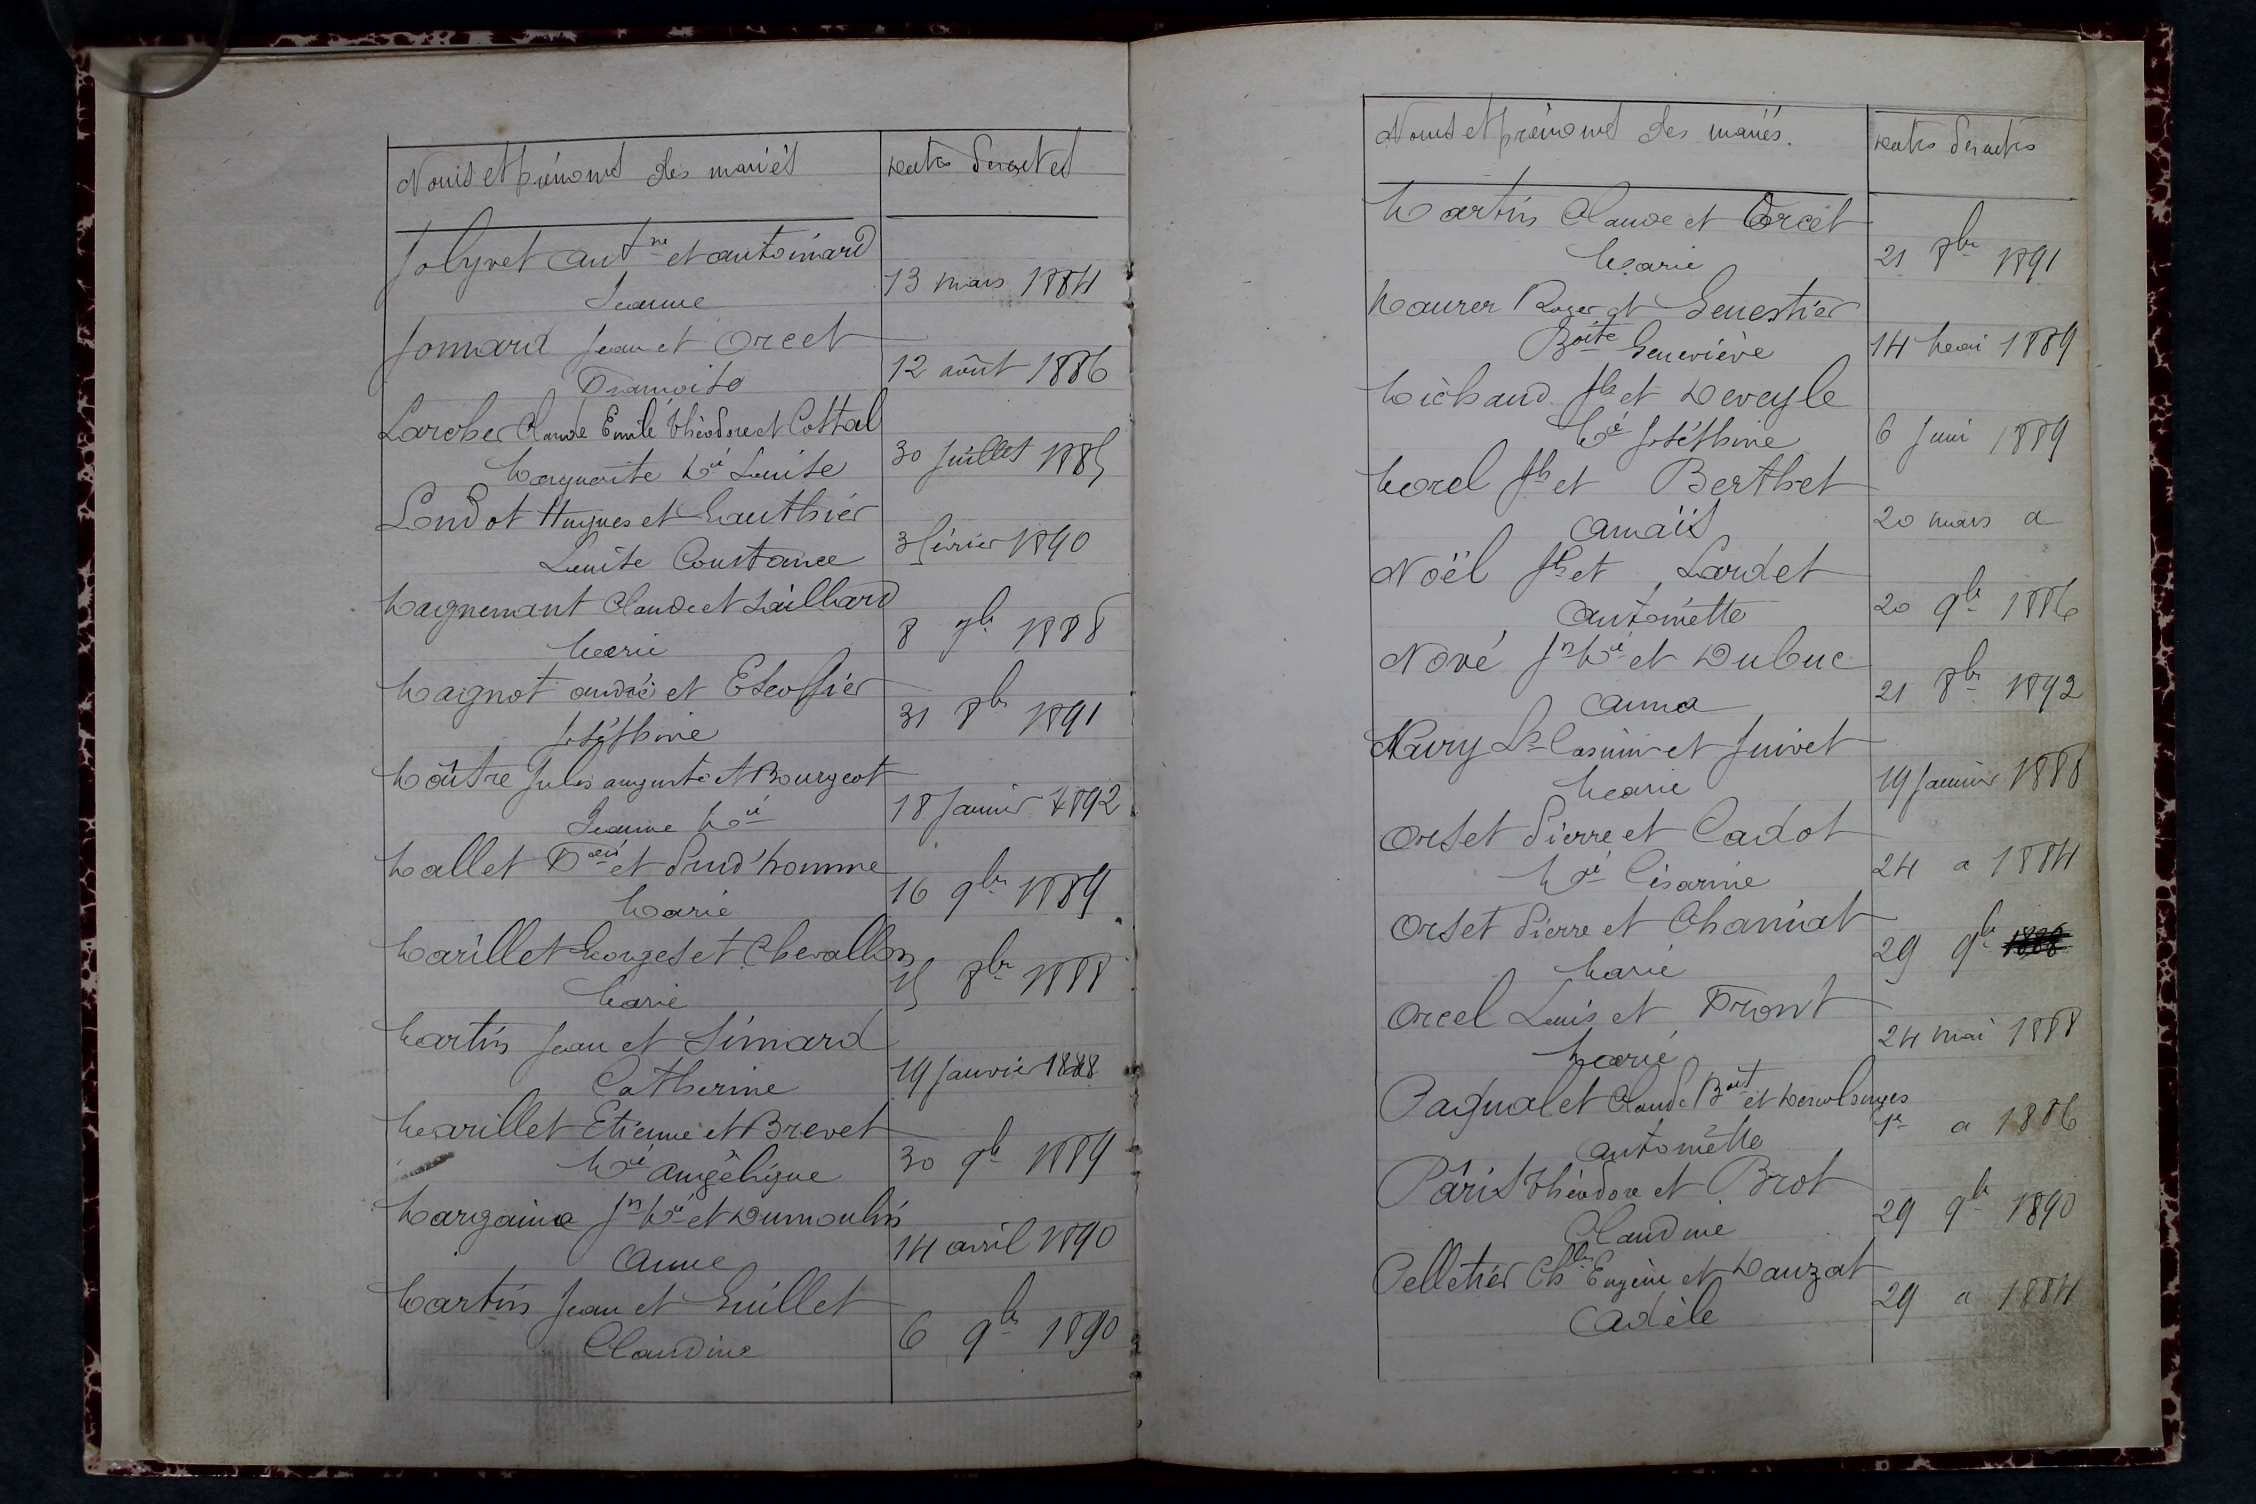 Noms et prénoms des mariés
Dates des actes
Jolyvet Antne et Antoinard
Jeanne
13 mars 1884
Jonnard Jean et Orcet
Françoise
12 août 1886
Larcher Claude Emile Théodore et Cottal
Marguerite Mie Louise
30 Juillet 1885
Londot Hugues et Gauthier
Louise Constance
3 février 1890
Magnenant Claude et Gaillard
Marie
8 7bre 1888
Magnot André et Escoffier
Joséphine
31 8bre 1891
Maître Jules Auguste et Bourgeot
Jeanne Mie
18 Janvier 1892
Mallet Fçois et Prud'homme
Marie
16 9bre 1889
Marillet Georges et Chevallon
Marie
15 8bre 1888
Martin Jean et Simard
Catherine
19 Janvier 1888
Marillet Etienne et Brevet
Mie Angélique
30 9bre 1889
Margaine Jn Mie et Dumoulin
Anne
14 avril 1890
Martin Jean et Guillet
Claudine
6 9bre 1890
Noms et prénoms des mariés.
Dates des actes
Martin Claude et Orcet
Marie
21 8bre 1891
Maurer Roger et Genestier
Geneviève
14 Mai 1889
Michaud Jh et Deveyle
Mie Joséphine
6 Juin 1889
Morel Jh et Berthet
Anaïs
20 mars d
Noël Jh et Lardet
Antoinette
20 9bre 1886
Nové Jn Mie et Dubuc
Anna
21 8bre 1892
Nury Ls Casimir et Juivet
Marie
19 Janvier 1888
Orset Pierre et Cadot
Mie Césarine
24 d 1884
Orset Pierre et Charnat
Marie
29 9bre 1888
Orcel Louis et Front
Marie
24 mai 1888
Pagnalet Claude Bte et
Antoinette
1er d 1886
Pâris Théodore et Brot
Claudine
29 9bre 1890
Pelletier Chles Eugène et Dauzat
Adèle
29 d 1884